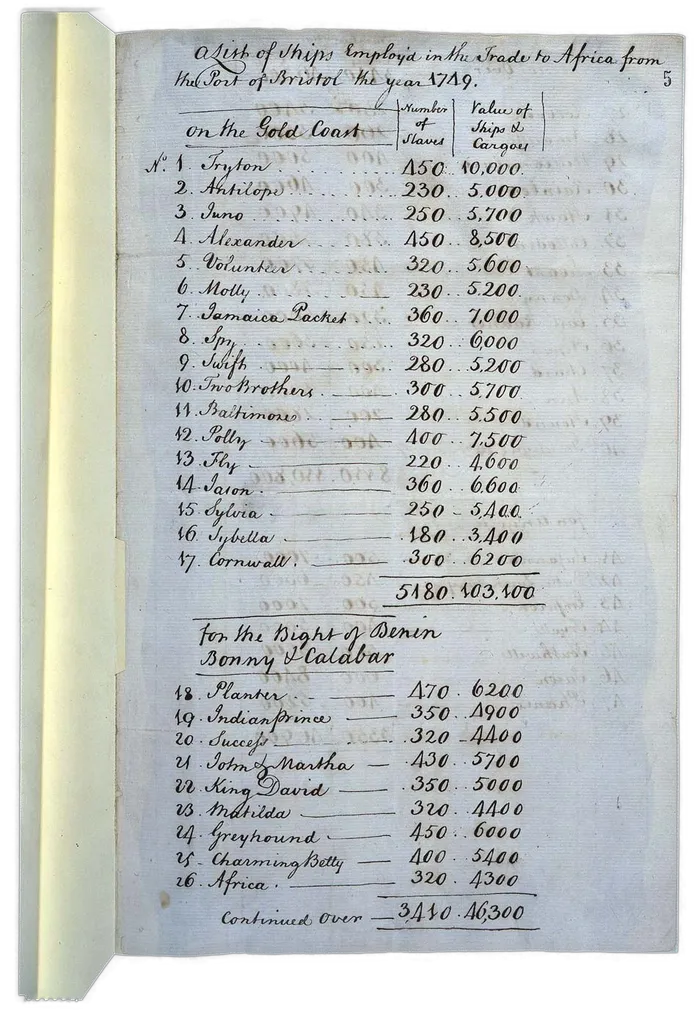 A List of Ships Employ'd in the Trade to Africa from
the Port of Bristol the year 1749.
5
on the Gold Coast
Number of Slaves
Value of Ships & Cargoes
No. 1. Tryton 450 10,000
2. Antilope 230 5,000
3. Juno 250 5,700
4. Alexander 450 8,500
5. Volunteer 320 5,600
6. Molly 230 5,200
7. Jamaica Packet 360 7,000
8. Spy 320 6,000
9. Swift 280 5,200
10. Two Brothers 300 5,700
11. Baltimore 280 5,500
12. Polly 400 7,500
13. Fly 220 4,600
14. Jason 360 6,600
15. Sylvia 250 5,400
16. Sybella 180 3,400
17. Cornwall 300 6200
5180 103,100
for the Bight of Benin
Bonny & Calabar
18. Planter 470 6200
19. Indian prince 350 4900
20. Success 320 4400
21. John & Martha 430 5700
22. King David 350 5000
23. Matilda 320 4400
24. Greyhound 450 6000
25. Charming Betty 400 5400
26. Africa 320 4300
Continued Over 3,410 46,300